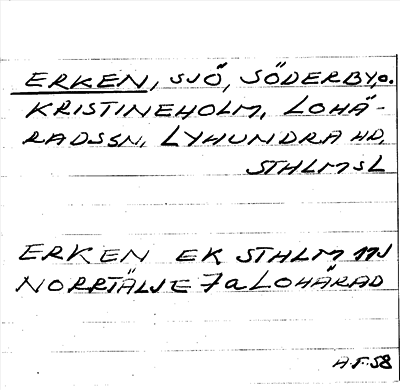 ERKEN, SJÖ, SÖDERBY, o.
KRISTINEHOLM, LOHÄ-
RADSSN, LYHUNDRA HD,
STHLMSL
ERKEN EK STHLM 11J
NORRTÄLJE 7a LOHÄRAD
A F. 58